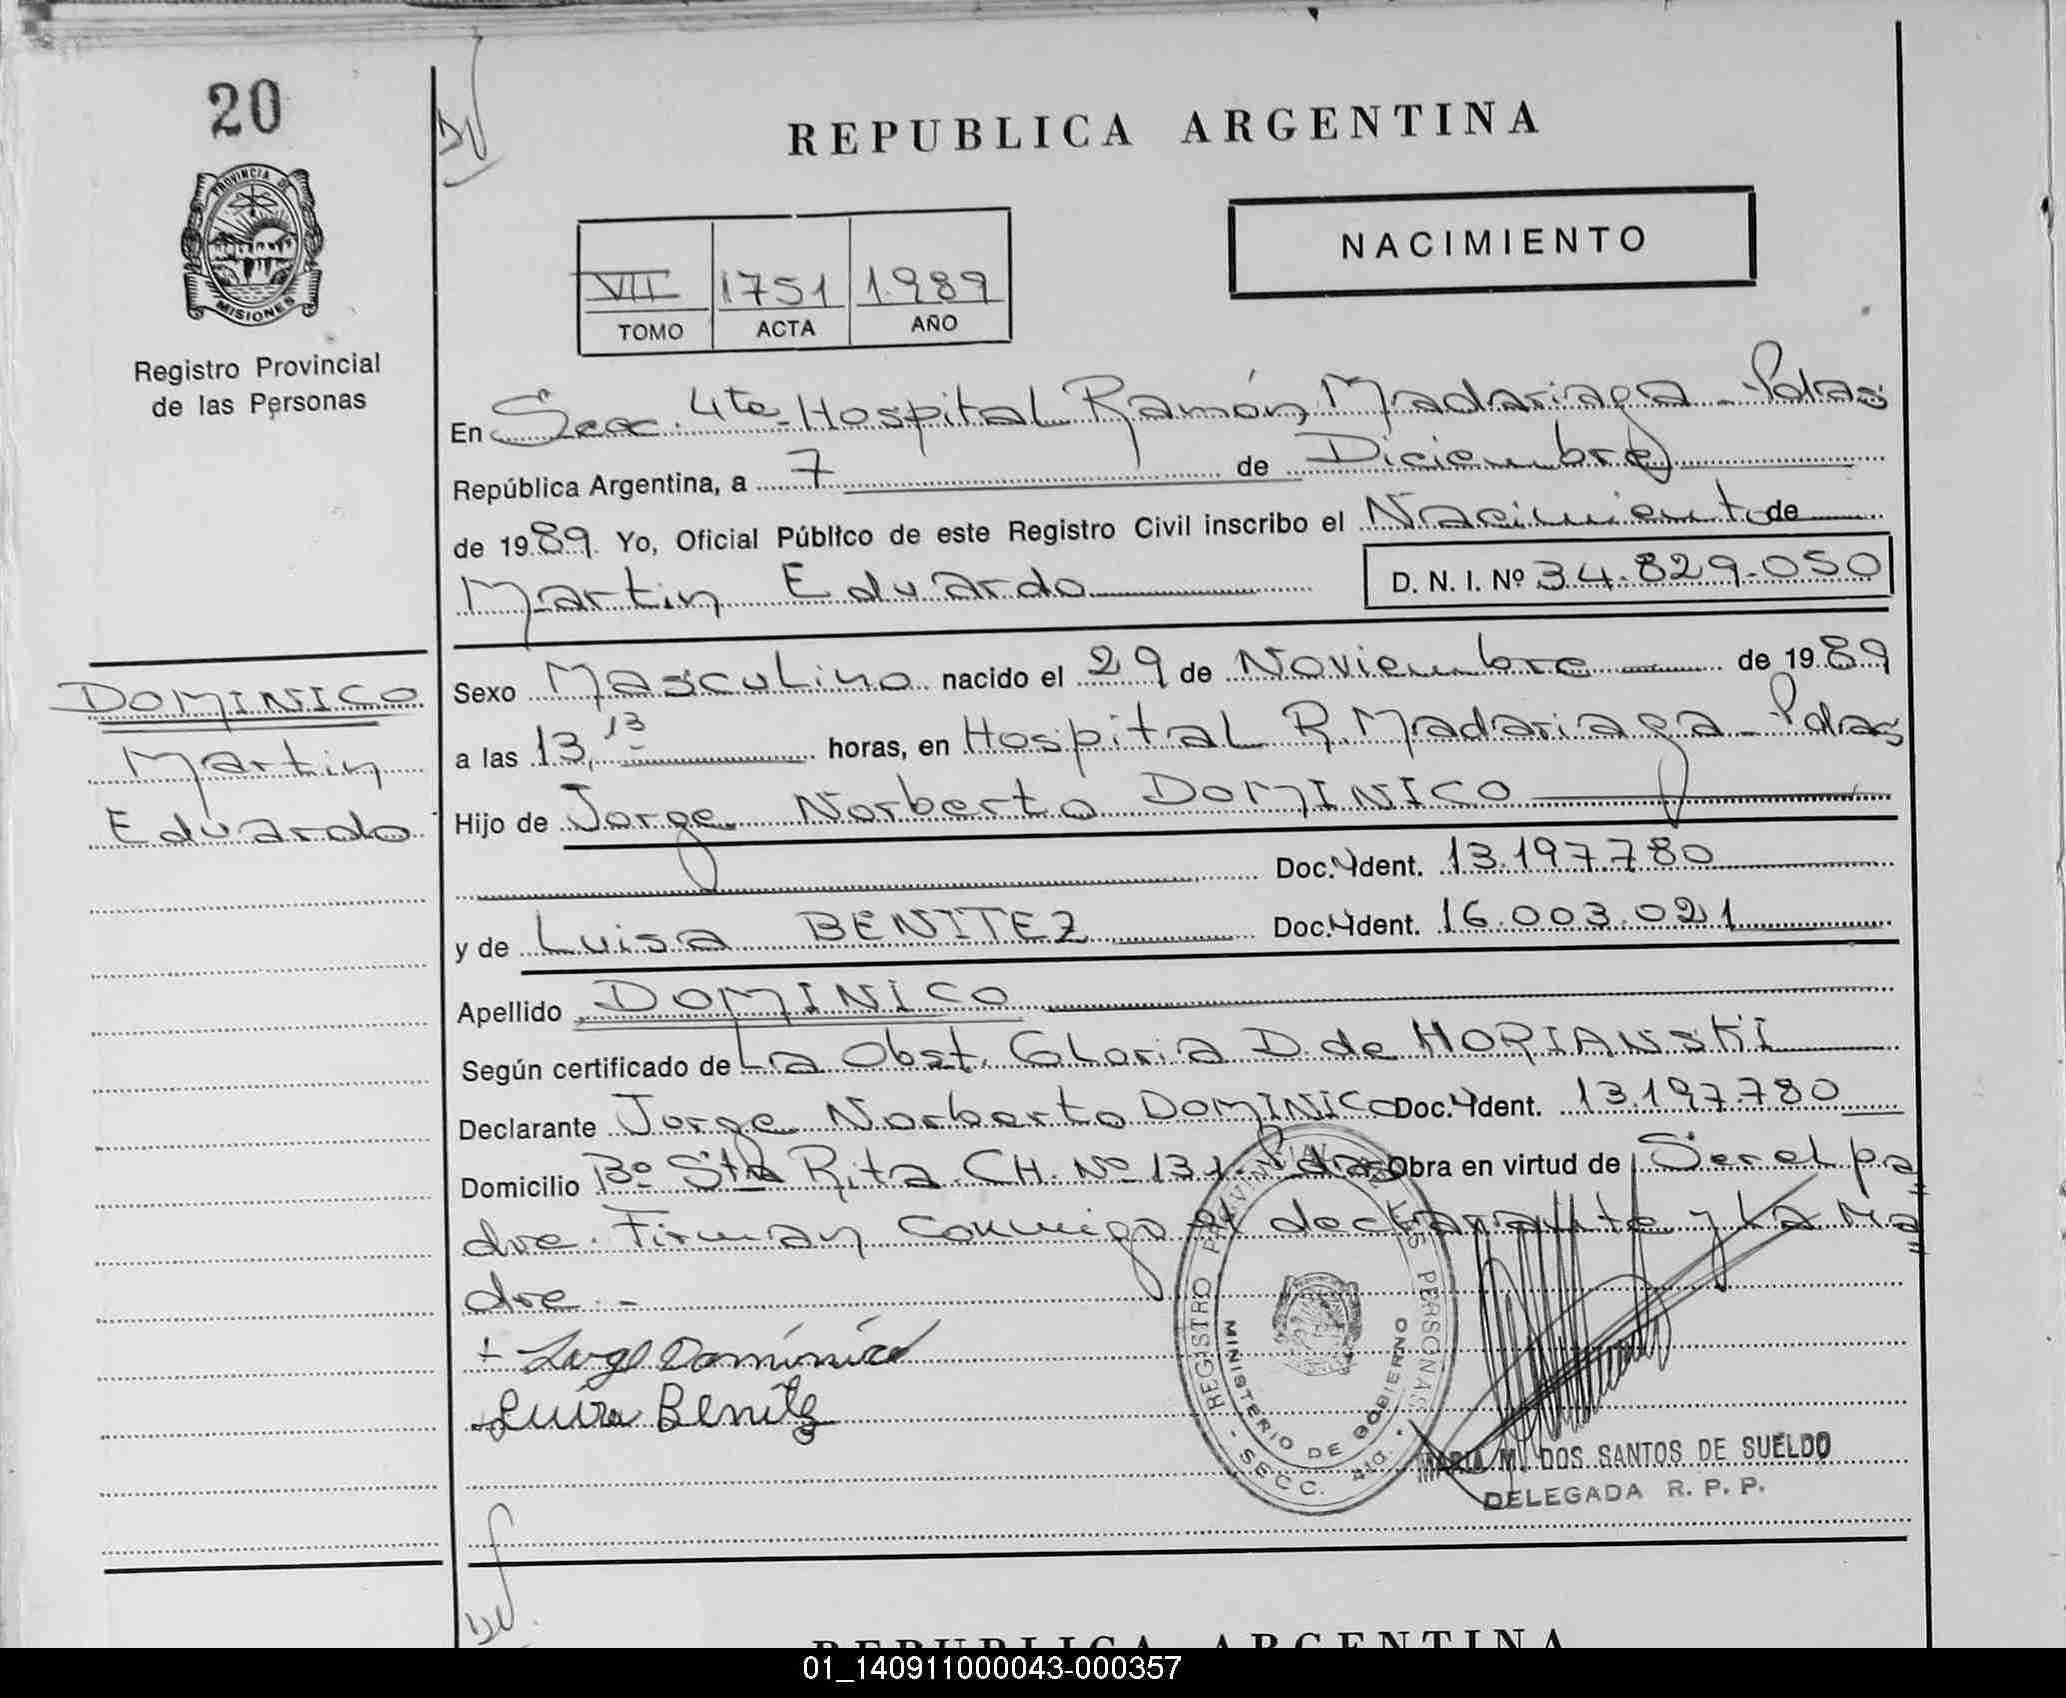 20
PROVINCIA DE
MISIONES
Registro Provincial
de las Personas
REPUBLICA ARGENTINA
NACIMIENTO
VII 1751 1989
TOMO ACTA AÑO
En Secc. 4ta. Hospital Ramón Madariaga - Pdas
República Argentina, a 7 de Diciembre
de 1989. Yo, Oficial Público de este Registro Civil inscribo el Nacimiento de
Martin Eduardo D. N. I. Nº 34.829.050
Sexo Masculino nacido el 29 de Noviembre de 1989
a las 13,13 horas, en Hospital R. Madariaga - Pdas
Hijo de Jorge Norberto DOMINICO
Doc. Ident. 13.197.780
y de Luisa BENITEZ Doc. Ident. 16.003.021
Apellido DOMINICO
Según certificado de La Obst. Gloria D. de HORIANSKI
Declarante Jorge Norberto DOMINICO Doc. Ident. 13.197.780
Domicilio Bº Sta Rita CH. Nº 131 - Pdas Obra en virtud de Ser el pa
dre. Firman conmigo el declarante y La Ma
dre. -
DOMINICO
Martin
Eduardo
+ Jorge Dominico
Luisa Benitez
REGISTRO PROVINCIAL DE LAS PERSONAS
MINISTERIO DE GOBIERNO
- SECC. 4ta. -
MARIA M. DOS SANTOS DE SUELDO
DELEGADA R. P. P.
REPUBLICA ARGENTINA
01_140911000043-000357